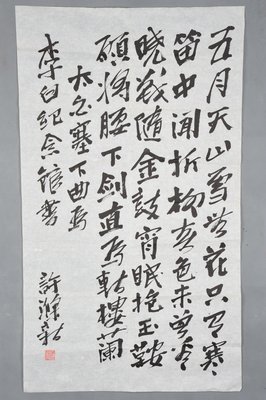 五月天山雪無花只有寒
笛中聞折柳春色未曾看
曉戰隨金鼓宵眠抱玉鞍
願將腰下劍直為斬樓蘭
太白塞下曲為
李白紀念館書
許滌新